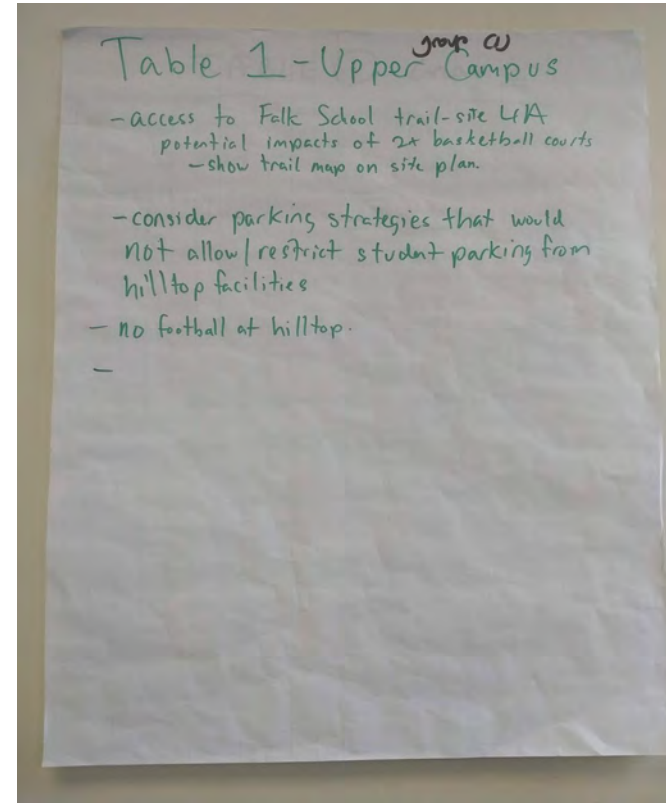 group
Table 1 - Upper Campus
- access to Falk School trail-site
potential impacts of 2x basketball courts
- show trail map on site plan.
- consider parking strategies that would
not allow/restrict student parking from
hilltop facilities
- no football at hilltop.
-